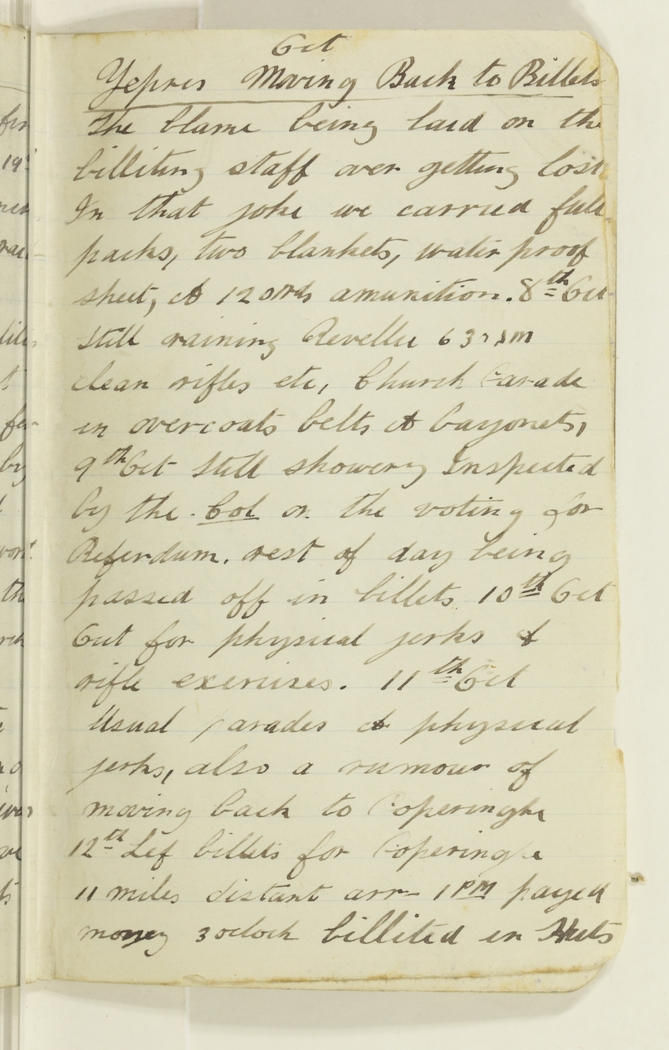 Oct
Yepres Moving Back to Billets
The blame being laid on the
billiting staff over getting lost
In that joke we carried full
packs, two blankets, water proof
sheet, & 120 rds amunition. 8th Oct
Still raining Revellie 630 AM
clean rifles etc, Church Parade
in overcoats belts & bayonets,
9th Oct Still showery Inspected
by the Col on the voting for
Referdum. rest of day being
passed off in billets 10th Oct
Out for physical jerks &
rifle exercises. 11th Oct
Usual parades & physical
jerks, also a rumour of
moving back to Poperinghe
12th Lef billets for Poperinghe
11 miles distant arr 1 PM payed
money 3 oclock billited in Huts